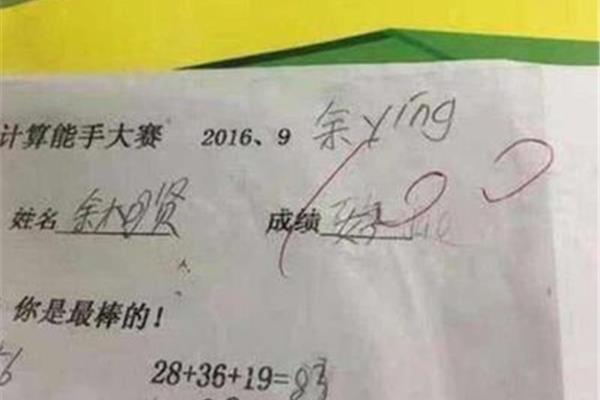 计算能手大赛 2016、9 余ying
姓名 成绩 100
你是最棒的!
28+36+19=83